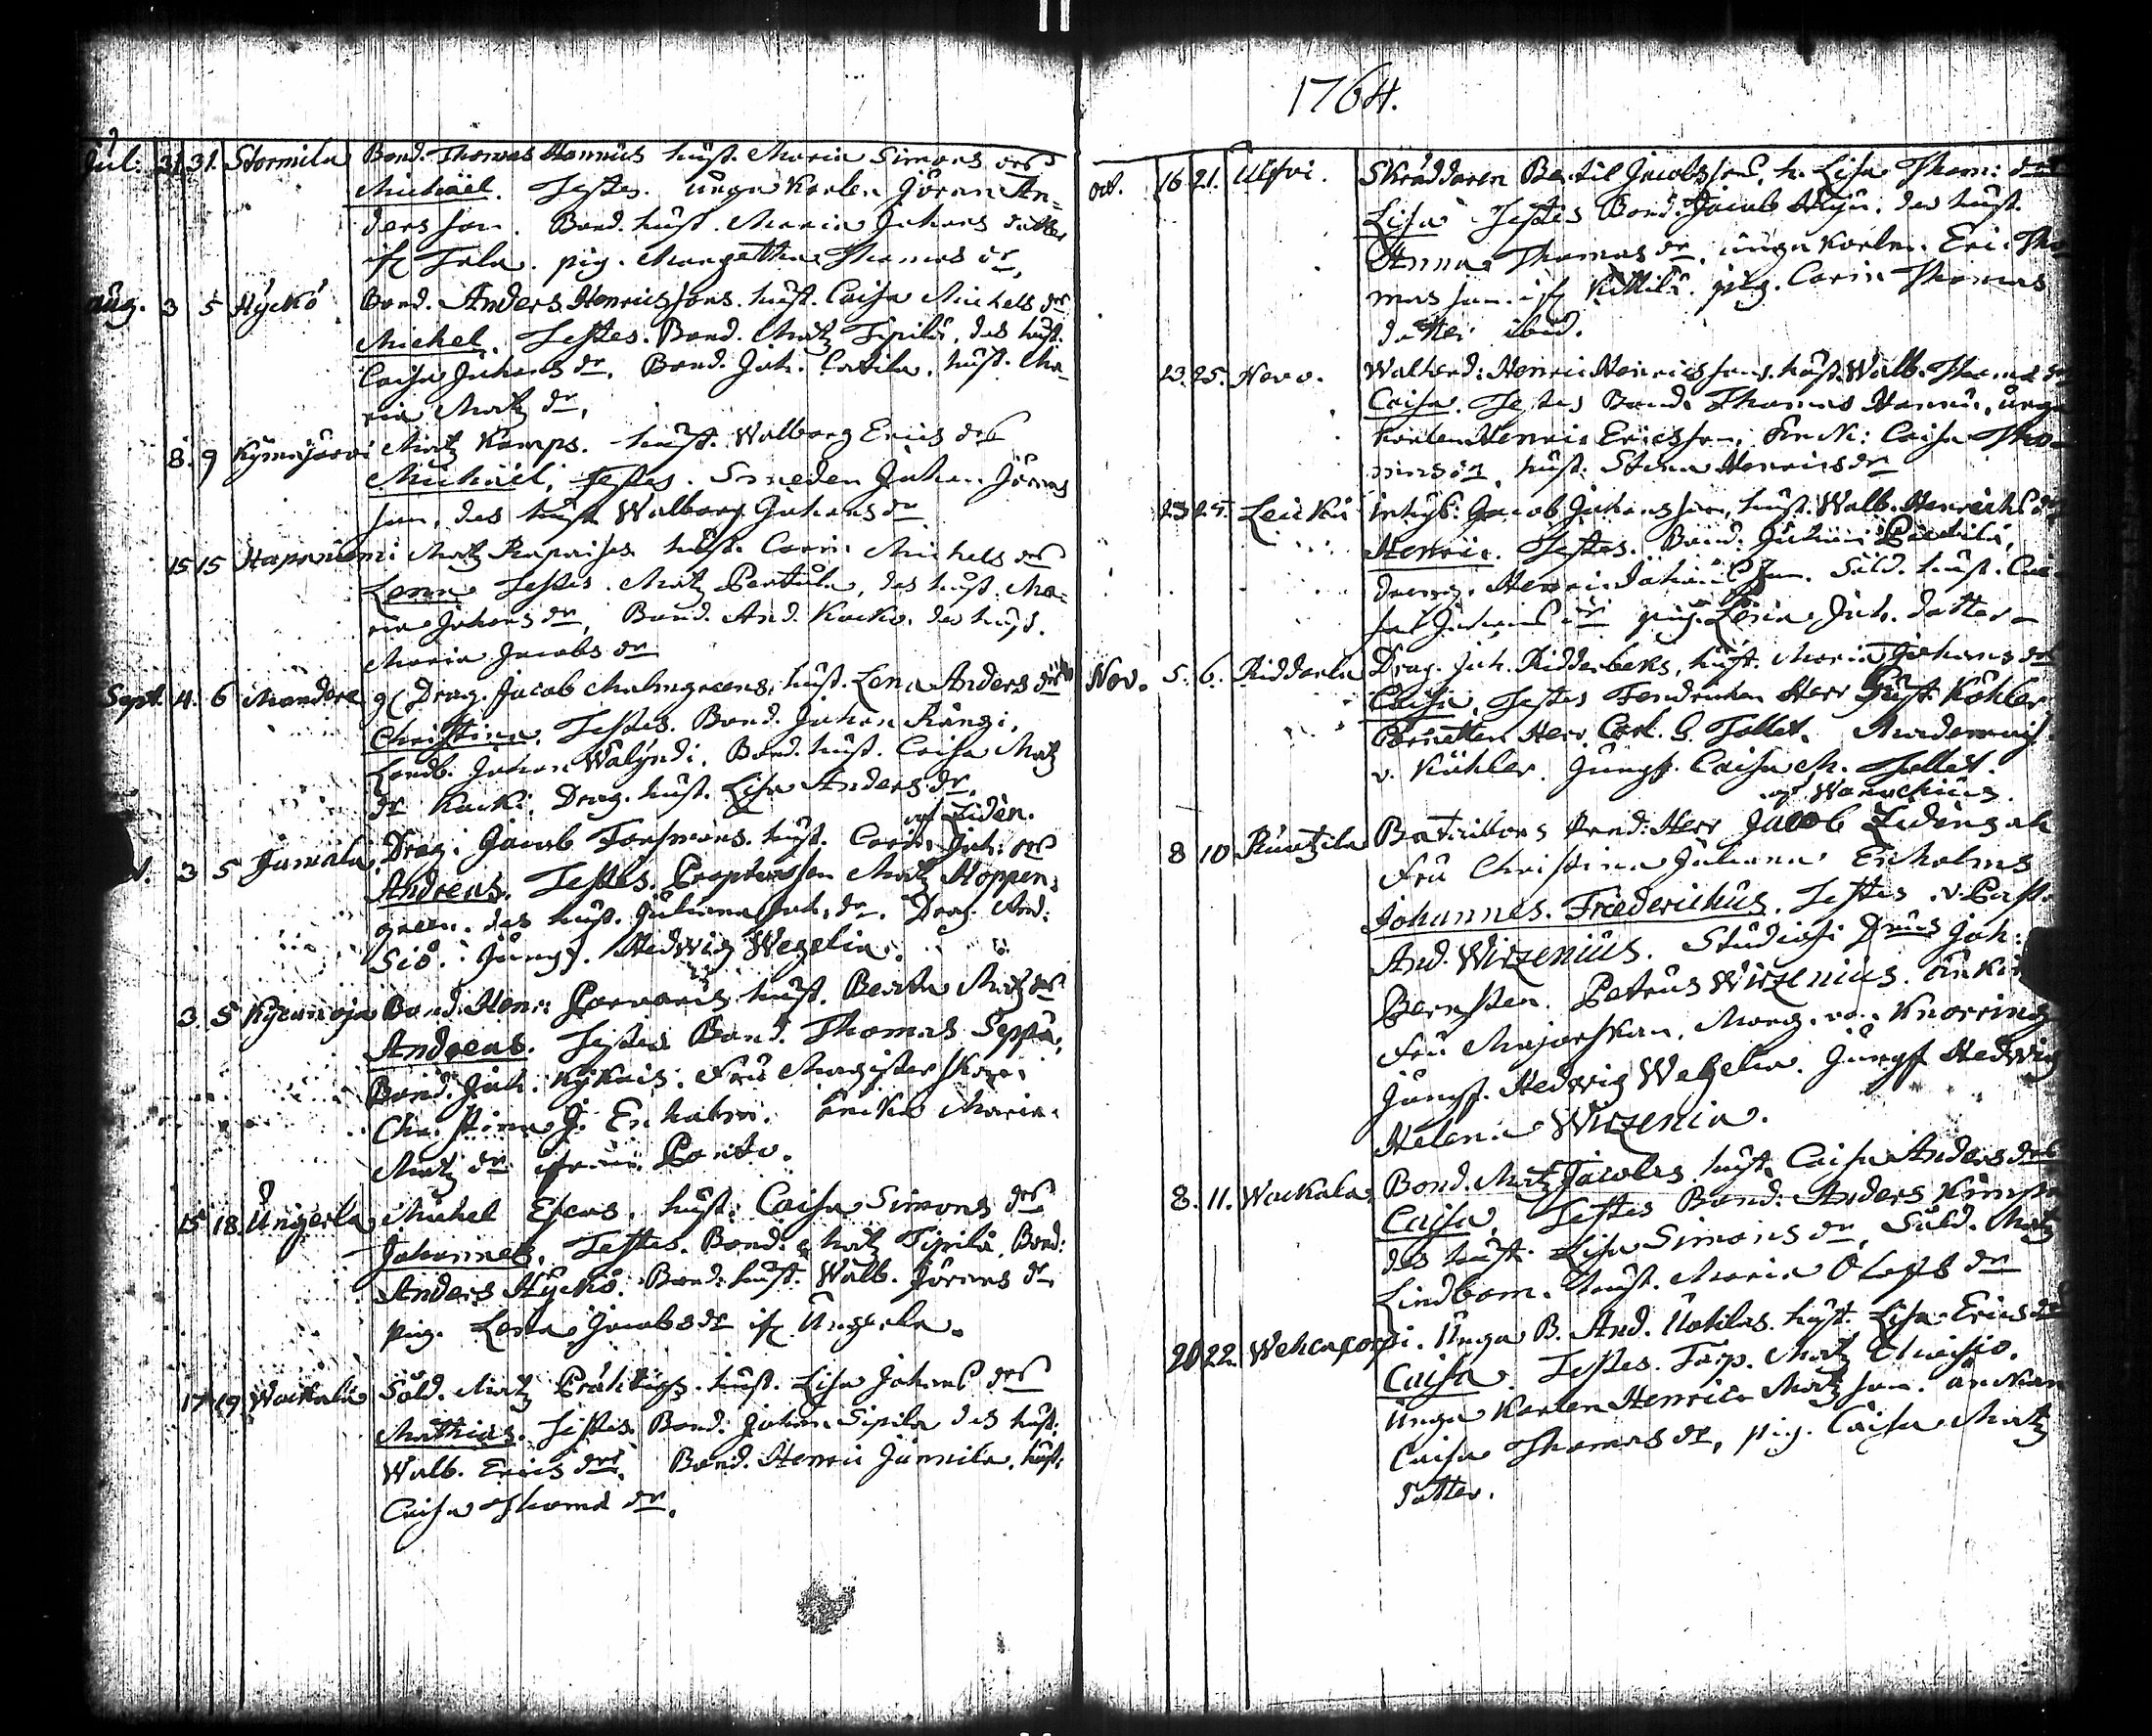 1764.
Jul: 31. 31. Stormila Bond. Thomas Hannus hust. Maria Simons drs
Michäel. Testes. unga Karlen Jöran An-
ders son. Bond. hust. Maria Johans dotter
if Tala. pig. Margetha Thomas dr,
aug. 3 5 Hyckö Bond. Anders Henrics sons. hust. Caisa Michels dr
Michel. Testes. Bond. Matz Sipilä, des hust.
Caisa Johans dr. Bond. Joh. Catila. hust. Ma-
ria Matz dr,
8. 9 Kÿmäjärvi Matz Kamps. hust. Walborg Erics drs
Michäel, Testes. Smeden Johan Jörans
son, des hust Walborg Johans dr
15 15 Haponiemi Matz hust. Carin Michels drs
Lena Testes. Matz Pentula, des hust. Ma-
ria Johans dr, Bond. And. Kacko. des hust.
Maria Jacobs dr
Sept. 4. 6 Mandere Drag. Jacob Malmgreens, hust. Lena Anders drs
Christina. Testes. Bond. Johan Rängi,
Landb. Johan Walÿndi, Bond. hust. Caisa Matz
dr Kacki, Drag. hust. Lisa Anders dr.
3 5 Jumala Drag. Jacob Forsmans. hust. Carin Joh: drs af Liden.
Andreas. Testes. Matz Hoppen-
green. des hust. Juliana Joh. dr. Drag. And:
Siö. Jungf. Hedwig Wegelia.
3. 5 Kÿcänoja Bond. Henr: hust. Beata Matz drs
Andreas. Testes Bond. Thomas Seppä,
Bond. Joh. Kÿkäis. Fru Magisterskan
Christina J. Enholm. änkio Maria
Matz dr
15 18. Ungerla Michel Escas. hust: Caisa Simons drs
Johannes. Testes. Bond: Matz Sipilä, Bond:
Anders Hÿckö. Bond: hust. Walb. Jörans dr
pig. Lena Jacobs dr if Ungerla.
17 19. Wackala Sold. Matz hust. Lisa Johans drs
Mathias. Testes. Bond: Johan Sipila des hust:
Walb. Erics drs. Bond. Henric Junnila, hust:
Caisa Thoma dr.
oct. 16 21. Ulfvi. Skräddaren Bertil Jacobs sons, h. Lisa Thom: drs
Lisa Testes Bond. Jacob des hust.
Anna Thomas dr. unga Karlen. Eric Tho
mas son. if Kittilä. pig. Carin Thomas
dotter ibid.
23. 25. Novo. Henric Henrics sons. hust. Walb. Thomas dr
Caisa. Testes Bond. Thomas Hannu, unga
Karlen Henric Ericsson, Caisa
hust. Stina Henrics dr
23 25. Leickü Jacob Johans sons, hust. Walb. Henrichs dr
Henric. Testes. Bond: Juhan
dräng. Henric Johans son. Sold. hust. Cai
sa Johans dr pig. Lena Joh. dotter
Nov. 5. 6. Ridderla Drag. Joh. Ridderbeks, hust. Maria Johans dr
Caisa, Testes Fendricken Herr Gust. Köhler
Cornetten Herr. Carl. G. Tollet.
v. Köhler. Jungf. Caisa M. Tollet.
8 10 Runtzila Batallions Herr Jacob Lidens ak
af Wanochius.
Fru Christina Juliana Enholms
Johannes. Friederichus. Testes v. Past.
And. Wirzenius. Studiosi Dnus Joh:
Bernsten. Petrus Wirzenius.
Fru Majorskan. Marg. von Knorring
Jungf. Hedwig Wegelia. Jungf Hedwig
Helena Wirzenia.
8. 11. Wackala. Bond. Matz Jacobs hust. Caisa Anders drs
Caisa. Testes Bond: Anders Kimpa
des hust. Lisa Simons dr, Sold. Matz
Lindbom. hust. Maria Olofs dr
20 22. Wehcakorpi. Unga B. And. Uotilas. hust. Lisa Erics dr
Caisa. Testes. Torp. Matz
Unga Karlen Henrick Matz son. änkan
Caisa Thomas dr, pig. Caisa Matz
dotter.